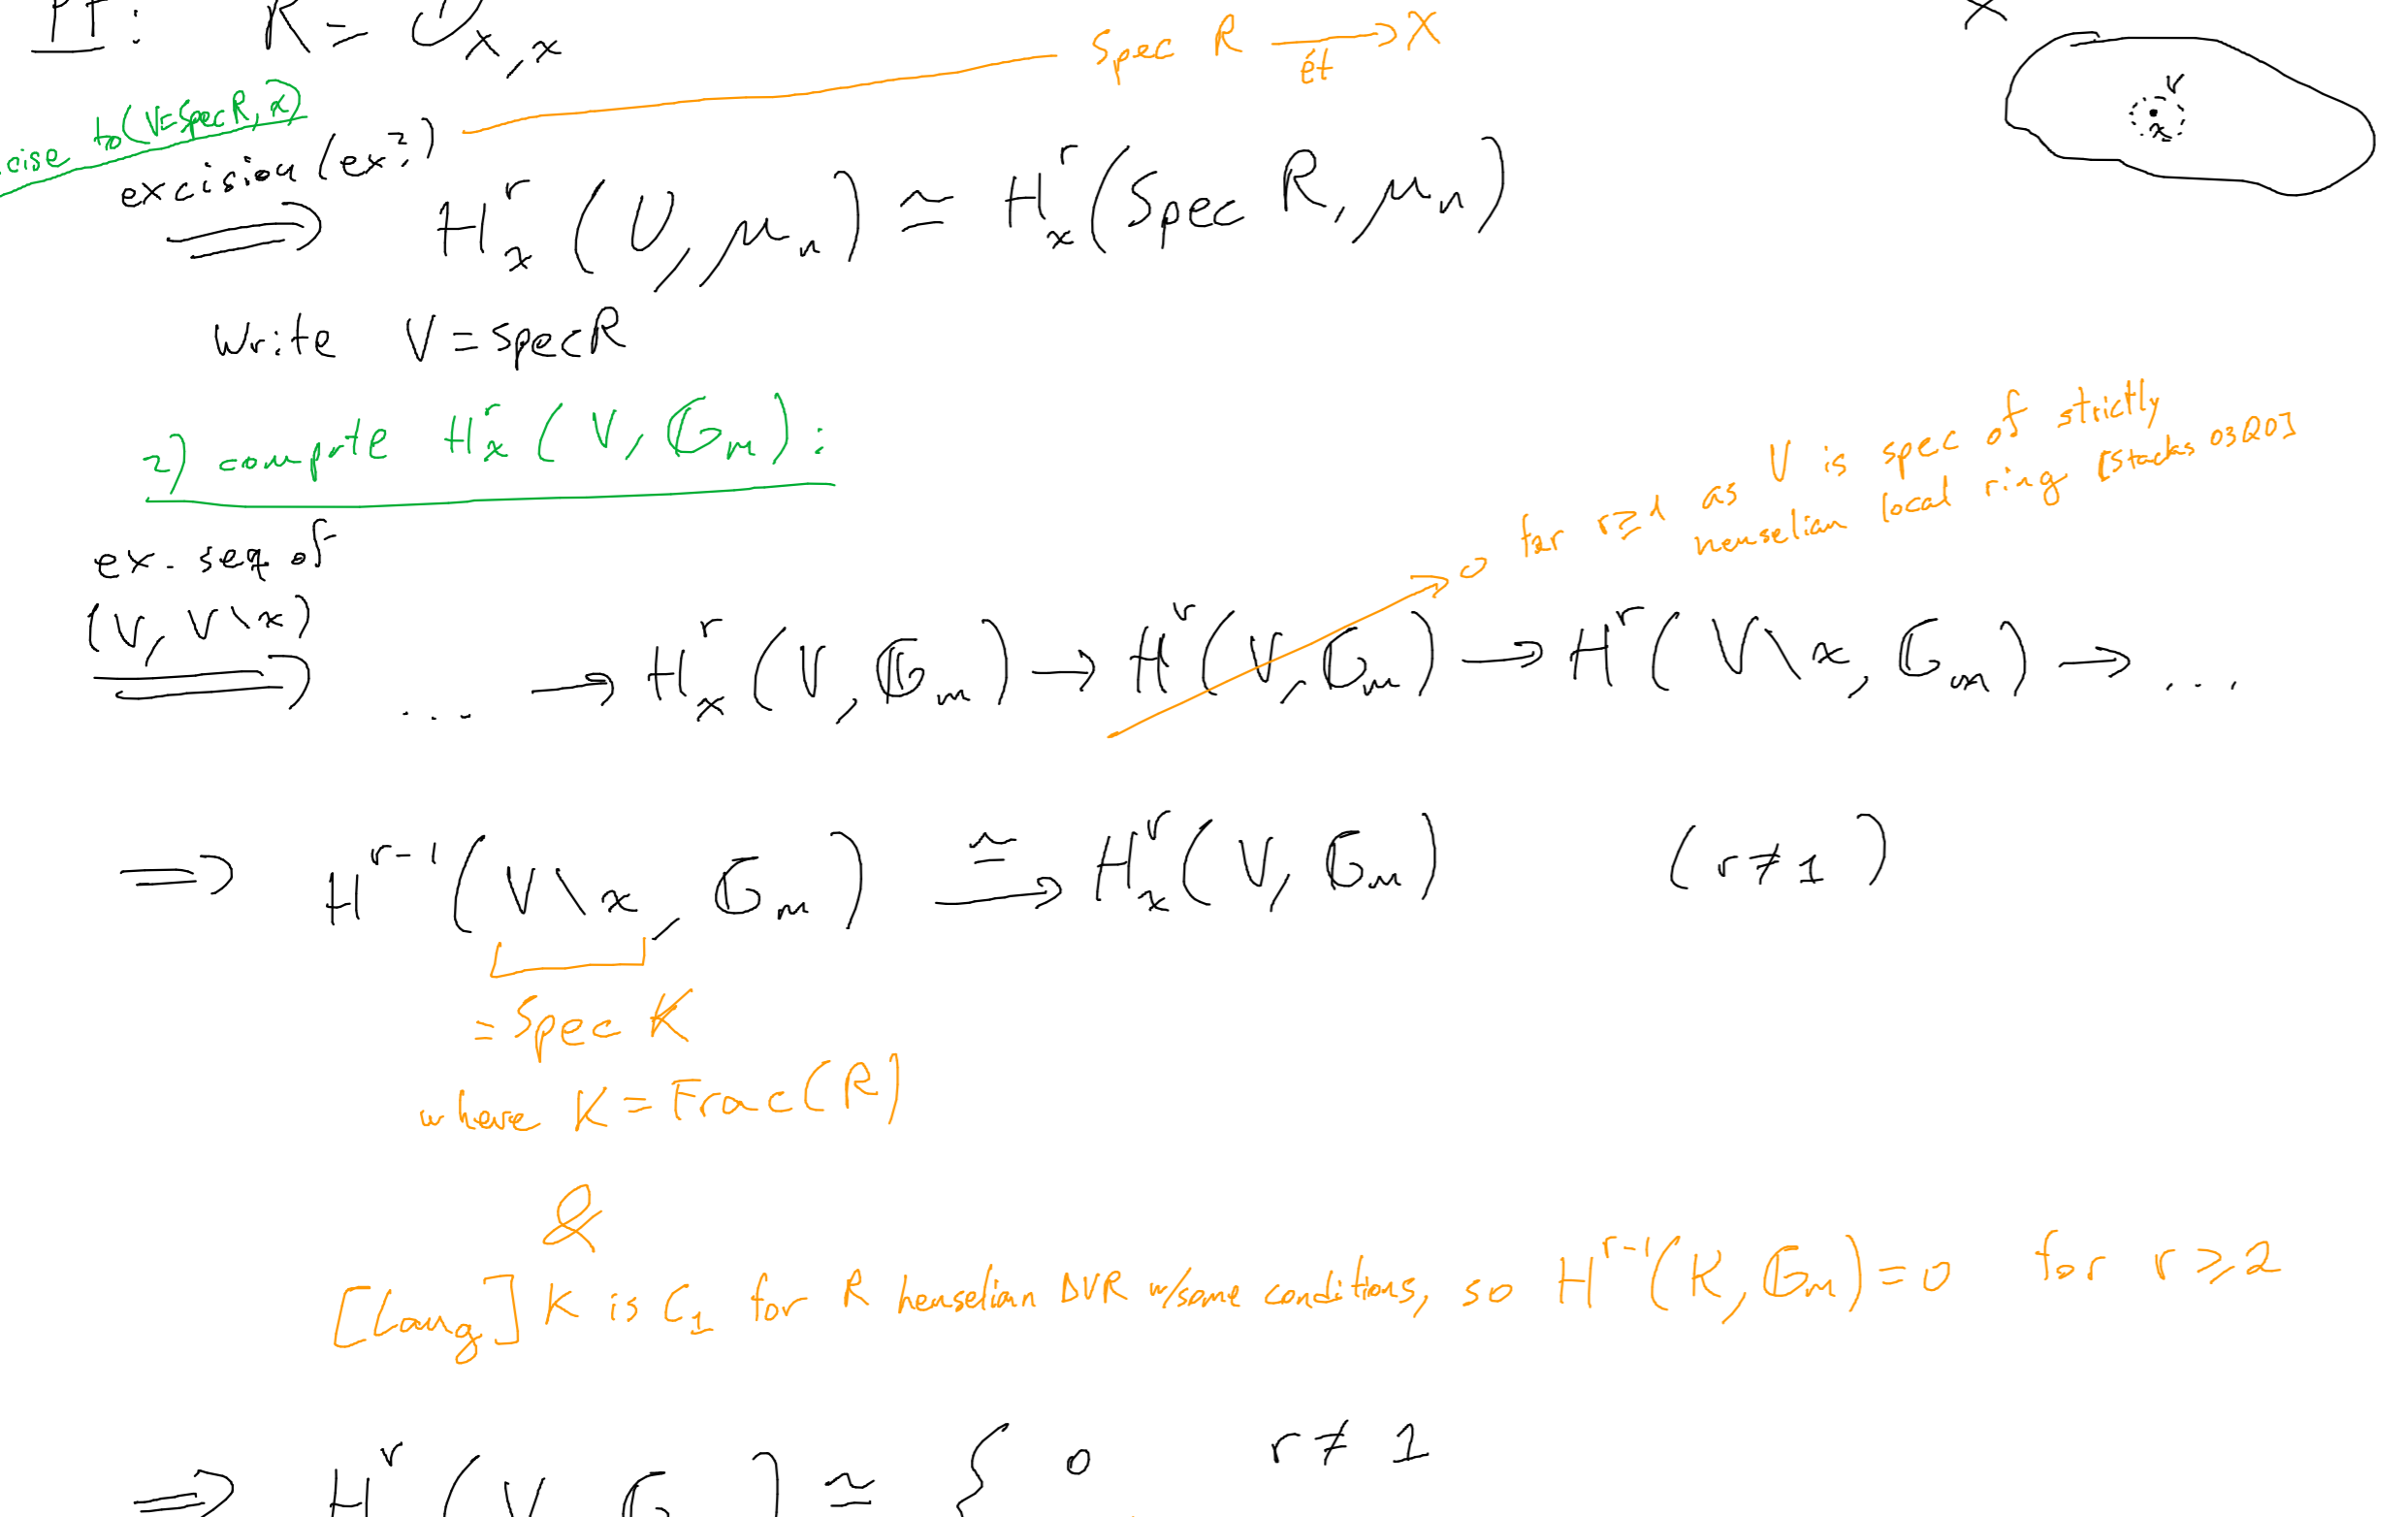 Pf: R = O_{X,x}
Spec R →ét X
X
V
x
cise to (V=Spec R, x)
excision (ex²,)
⟹ H^r_x (U, μ_n) ≃ H^r_x (Spec R, μ_n)
Write V = Spec R
2) compute H^r_x (V, G_m):
ex. seq of
(V, V\x)
⟹ ... → H^r_x (V, G_m) → H^r (V, G_m) → H^r (V\x, G_m) → ...
0 for r≥1 as V is spec of strictly
henselian local ring [Stacks 03QO]
⟹ H^{r-1} (V\x, G_m) ≅→ H^r_x (V, G_m) (r≠1)
= Spec K
where K = Frac(R)
&
[Lang] K is C_1 for R henselian DVR w/some conditions, so H^{r-1}(K, G_m) = 0 for r≥2
⟹ H^r (V G ) ≃ { 0 r≠1